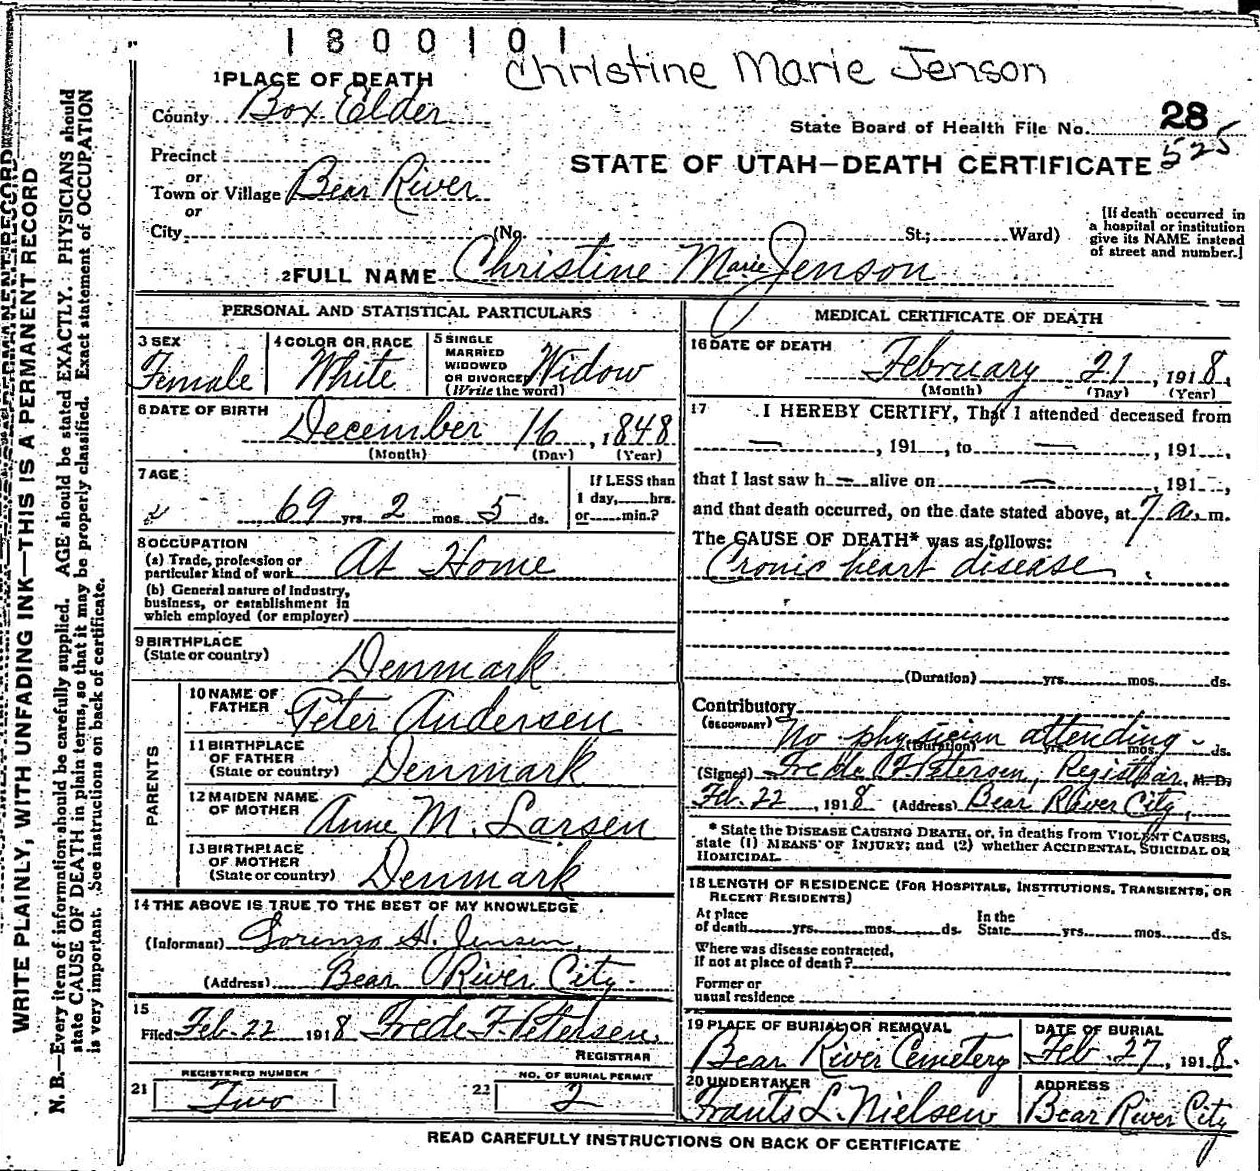 1800101
Christine Marie Jenson
1 PLACE OF DEATH
County Box Elder
State Board of Health File No. 28
525
STATE OF UTAH—DEATH CERTIFICATE
Precinct
or
Town or Village Bear River
or
City (No. St.; Ward)
[If death occurred in
a hospital or institution
give its NAME instead
of street and number.]
2 FULL NAME Christine Marie Jenson
PERSONAL AND STATISTICAL PARTICULARS
3 SEX
Female
4 COLOR OR RACE
White
5 SINGLE
MARRIED
WIDOWED
OR DIVORCED
(Write the word)
Widow
6 DATE OF BIRTH
December 16, 1848
(Month) (Day) (Year)
7 AGE
69 yrs. 2 mos. 5 ds.
If LESS than
1 day, hrs.
or min.?
8 OCCUPATION
(a) Trade, profession or
particular kind of work At Home
(b) General nature of Industry,
business, or establishment in
which employed (or employer)
9 BIRTHPLACE
(State or country)
Denmark
PARENTS
10 NAME OF
FATHER
Peter Andersen
11 BIRTHPLACE
OF FATHER
(State or country)
Denmark
12 MAIDEN NAME
OF MOTHER
Anne M. Larsen
13 BIRTHPLACE
OF MOTHER
(State or country)
Denmark
14 THE ABOVE IS TRUE TO THE BEST OF MY KNOWLEDGE
(Informant) Lorenzo H. Jensen,
(Address) Bear River City.
15
Filed Feb. 22 1918 Frede F. Petersen.
REGISTRAR
21
REGISTERED NUMBER
Two
22
NO. OF BURIAL PERMIT
2
MEDICAL CERTIFICATE OF DEATH
16 DATE OF DEATH
February 21, 1918.
(Month) (Day) (Year)
17 I HEREBY CERTIFY, That I attended deceased from
—, 191 , to —, 191 ,
that I last saw h — alive on —, 191 -,
and that death occurred, on the date stated above, at 7 a. m.
The CAUSE OF DEATH* was as follows:
Cronic heart disease.
(Duration) yrs. mos. ds.
Contributory
(SECONDARY) No physician attending -
(Duration) yrs. mos. ds.
(Signed) Frede F. Petersen, Registrar, M.D.
Feb. 22, 1918 (Address) Bear River City,
* State the DISEASE CAUSING DEATH, or, in deaths from VIOLENT CAUSES,
state (1) MEANS OF INJURY; and (2) whether ACCIDENTAL, SUICIDAL OR
HOMICIDAL.
18 LENGTH OF RESIDENCE (FOR HOSPITALS, INSTITUTIONS, TRANSIENTS, OR
RECENT RESIDENTS)
At place
of death yrs. mos. ds.
In the
State yrs. mos. ds.
Where was disease contracted,
if not at place of death?
Former or
usual residence
19 PLACE OF BURIAL OR REMOVAL
Bear River Cemetery
DATE OF BURIAL
Feb. 27, 1918.
20 UNDERTAKER
Frants L. Nielsen
ADDRESS
Bear River City
READ CAREFULLY INSTRUCTIONS ON BACK OF CERTIFICATE
WRITE PLAINLY, WITH UNFADING INK—THIS IS A PERMANENT RECORD
N. B.—Every item of information should be carefully supplied. AGE should be stated EXACTLY. PHYSICIANS should
state CAUSE OF DEATH in plain terms, so that it may be properly classified. Exact statement of OCCUPATION
is very important. See instructions on back of certificate.